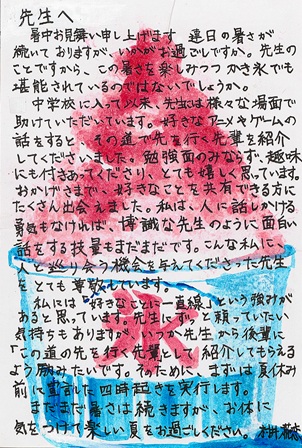 先生へ
暑中お見舞い申し上げます 連日の暑さが
続いておりますが、いかがお過ごしですか。先生の
ことですから、この暑さを楽しみつつ かき氷でも
堪能されているのではないでしょうか。
中学校に入って以来、先生には様々な場面で
助けていただいています。好きなアニメやゲームの
話をすると その道で先を行く先輩を紹介
してくださいました。勉強面のみならず、趣味
にも付きあってくださり、とても嬉しく思っています。
おかげさまで、好きなことを共有できる方に
たくさん出会えました。私は、人に話しかける
勇気もなければ、博識な先生のように面白い
話をする技量もまだまだです。こんな私に、
人と巡り会う機会を与えてくださった先生
を とても尊敬しています。
私には「好きなことに一直線」という強みが
あると思っています。先生にずっと頼っていたい
気持ちもありますが、いつか先生から後輩に
「この道を先を行く先輩」として紹介してもらえる
よう励みたいです。そのために、まずは夏休み
前に宣言した四時起きを実行します。
まだまだ暑さは続きますが、お体に
気をつけて楽しい夏をお過ごしください。
氷